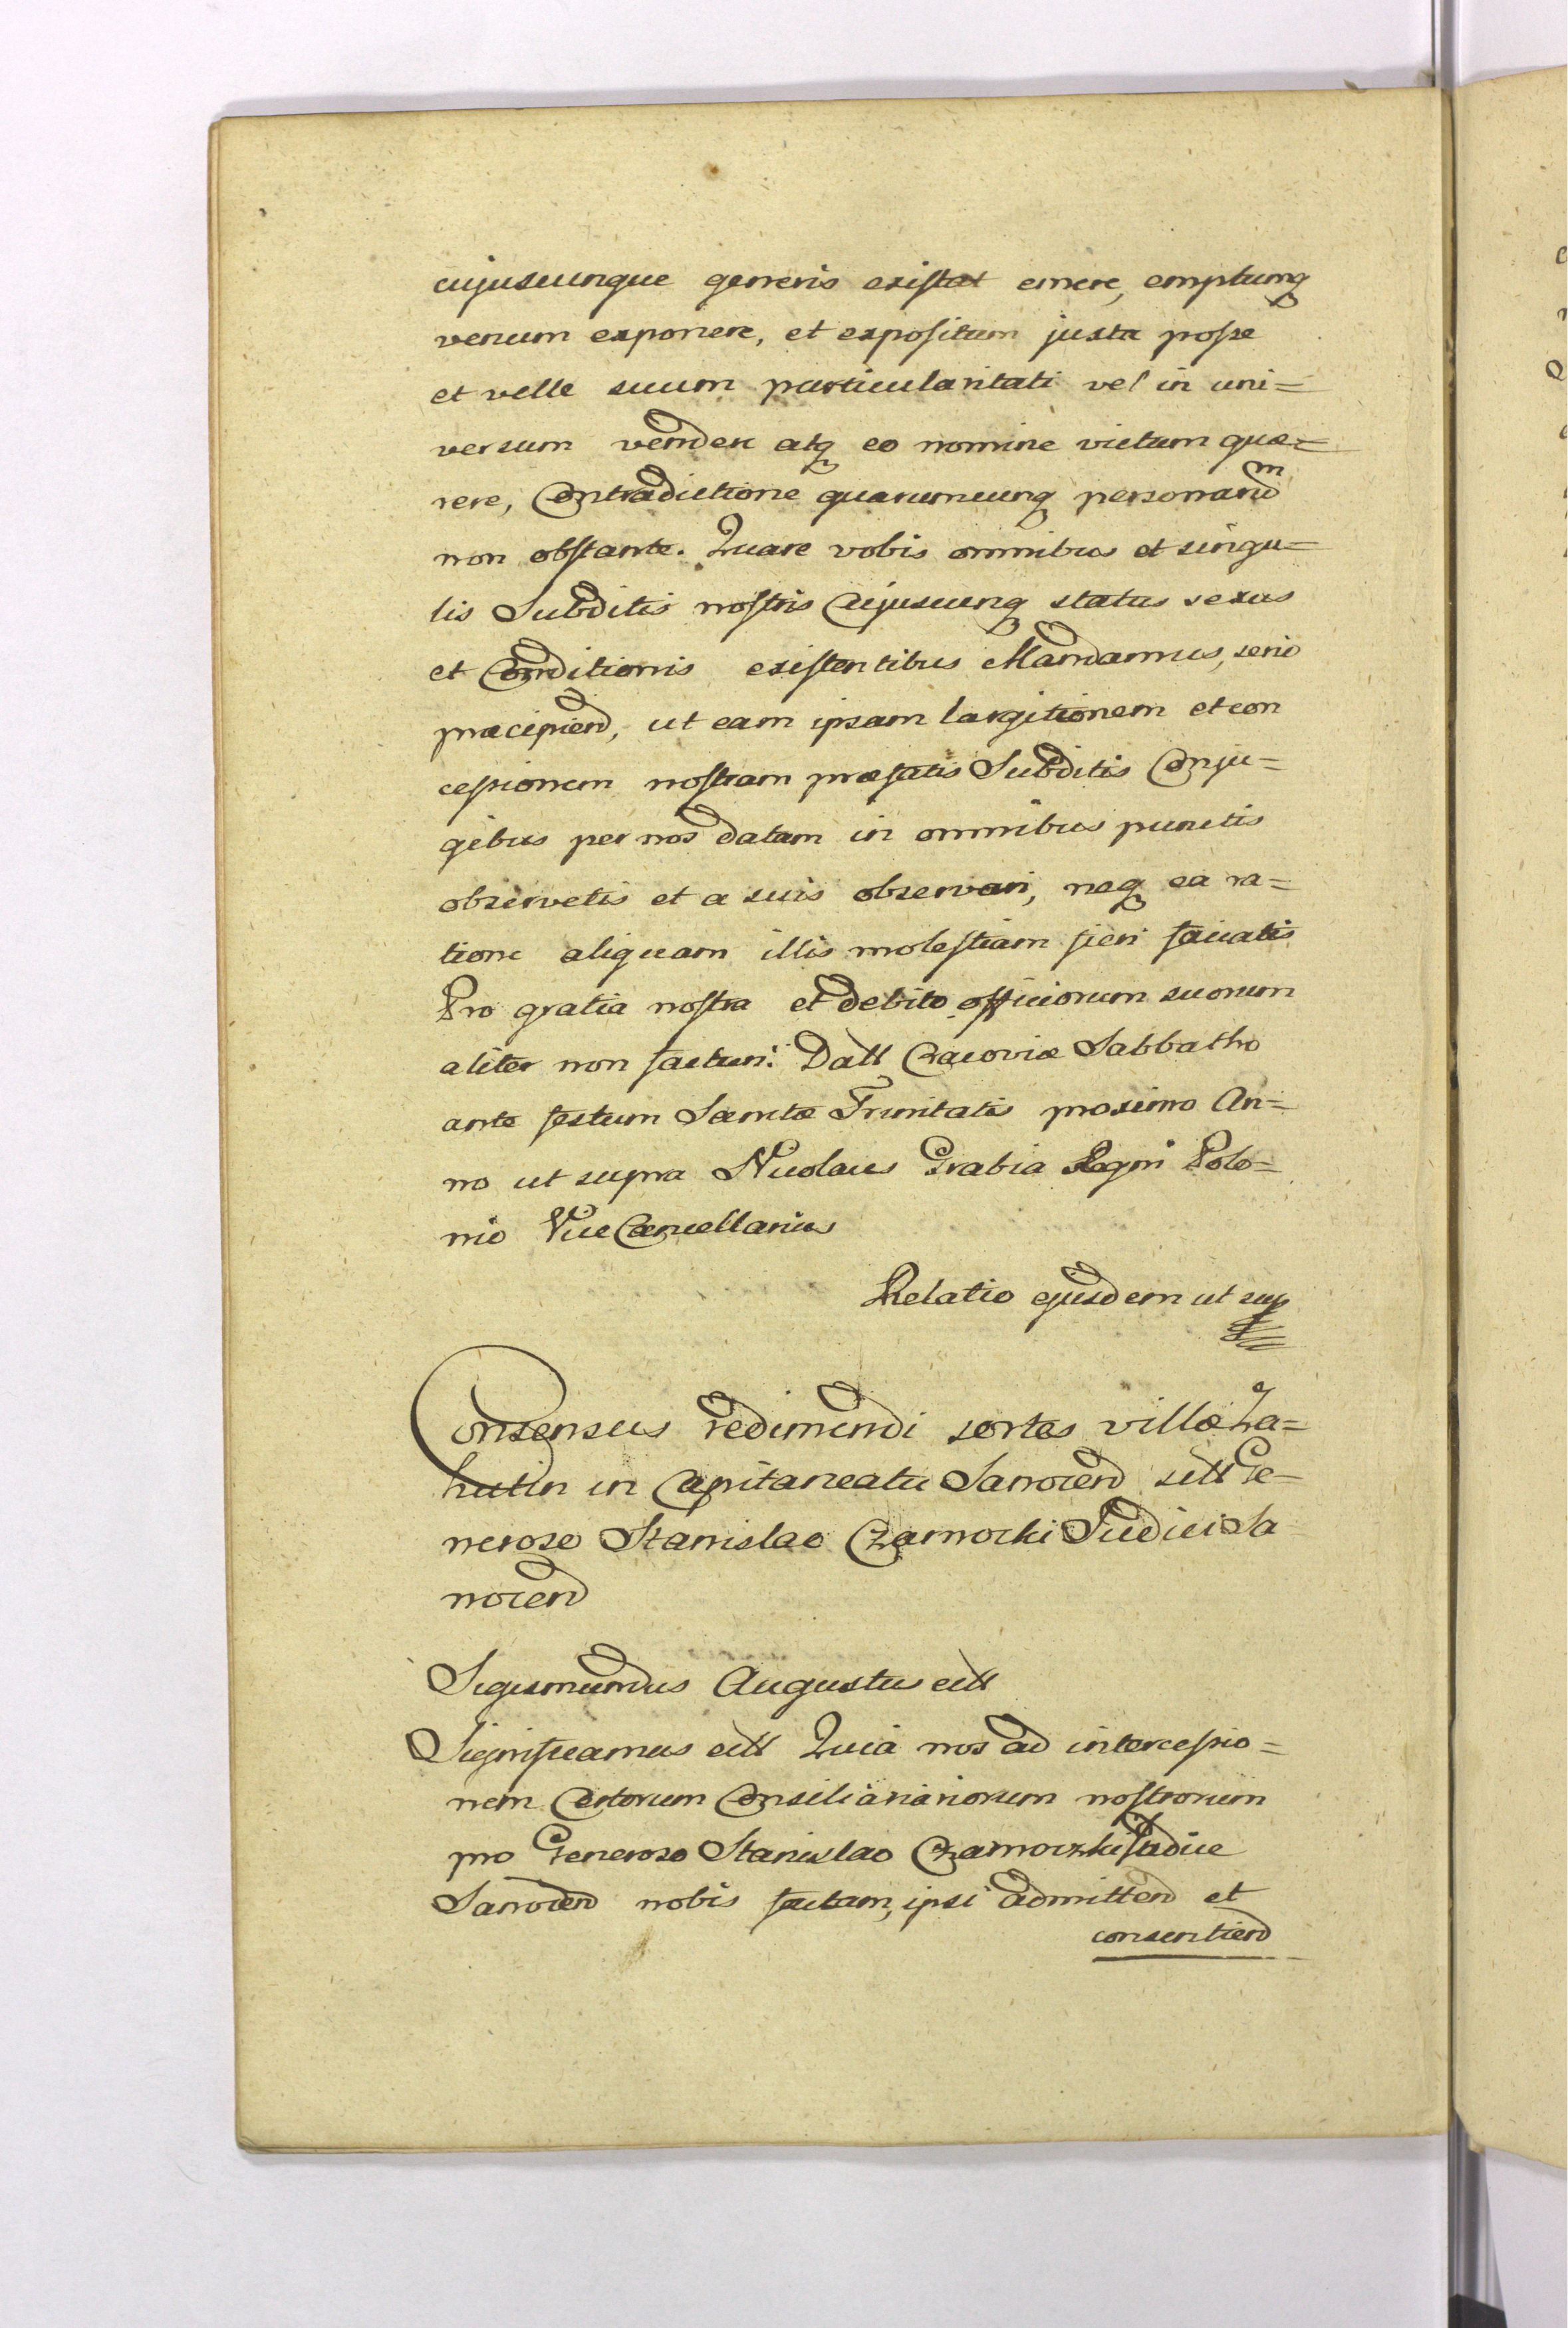 cujuscunque generis existat emere, emptumq
venum exponere, et expositum juxta posse
et velle suum particularitati vel in uni=
versum vendere atq eo nomine victum quæ=
rere, Contradictione quarumcunq personarum
non obstante. Quare vobis omnibus et singu=
lis Subditis nostris Cujuscunq status sexus
et Conditionis existentibus Mandamus, serio
præcipiend, ut eam ipsam largitionem et con
cessionem nostram præfatis Subditis Conju=
gibus per nos datam in omnibus punctis
observetis et a suis observari, neq ea ra=
tione aliquam illis molestiam fieri faciatis
Pro gratia nostra et debito officiorum suorum
aliter non facturi. Datt Cracoviæ Sabbatho
ante festum Sanctæ Trinitatis proximo An=
no ut supra Nicolaus Grabia Regni Polo=
nio ViceCancellarius
Relatio ejusdem ut sup
Consensus redimendi sortes villæ Za=
hutin in Capitaneatu Sanocend sitt Ge=
neroso Stanislao Czarnocki Judici Sa
nocend
Sigismundus Augustus ett
Significamus ett Quia nos ad intercessio=
nem Certorum Consiliariariorum nostrorum
pro Generoso Stanislao Czarnoczki Judice
Sanocend nobis factam, ipsi admittend et
consentiend